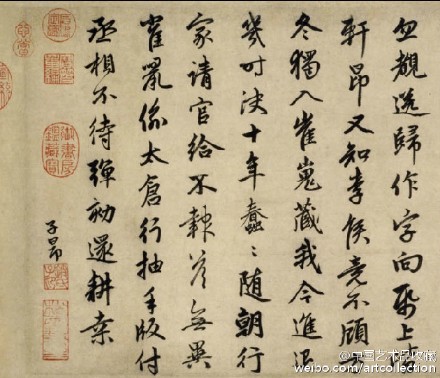 歸作字向
軒昂又知李侯竟不顧方
冬獨入崔嵬藏我今進退
幾時決十年蠢〻隨朝行
家請官給不報答無異
雀鼠偷太倉行抽手版付
丞相不待彈劾還耕桑
子昂
@中国艺术品收藏
weibo.com/artcollection